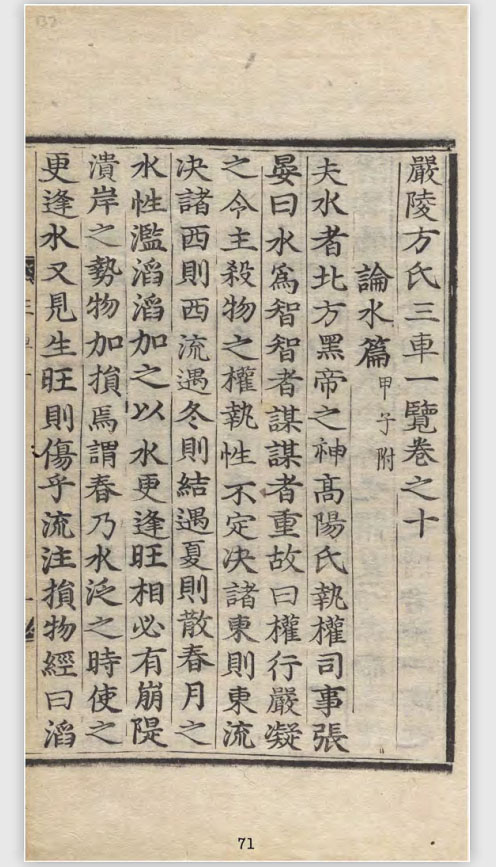 嚴陵方氏三車一覽卷之十
論水篇 甲子附
夫水者北方黑帝之神高陽氏執權司事張
晏曰水爲智智者謀謀者重故曰權行嚴凝
之令主殺物之權執性不定决諸東則東流
决諸西則西流遇冬則結遇夏則散春月之
水性濫滔滔加之以水更逢旺相必有崩隄
潰岸之勢物加損焉謂春乃水泛之時使之
更逢水又見生旺則傷乎流注損物經曰滔
71